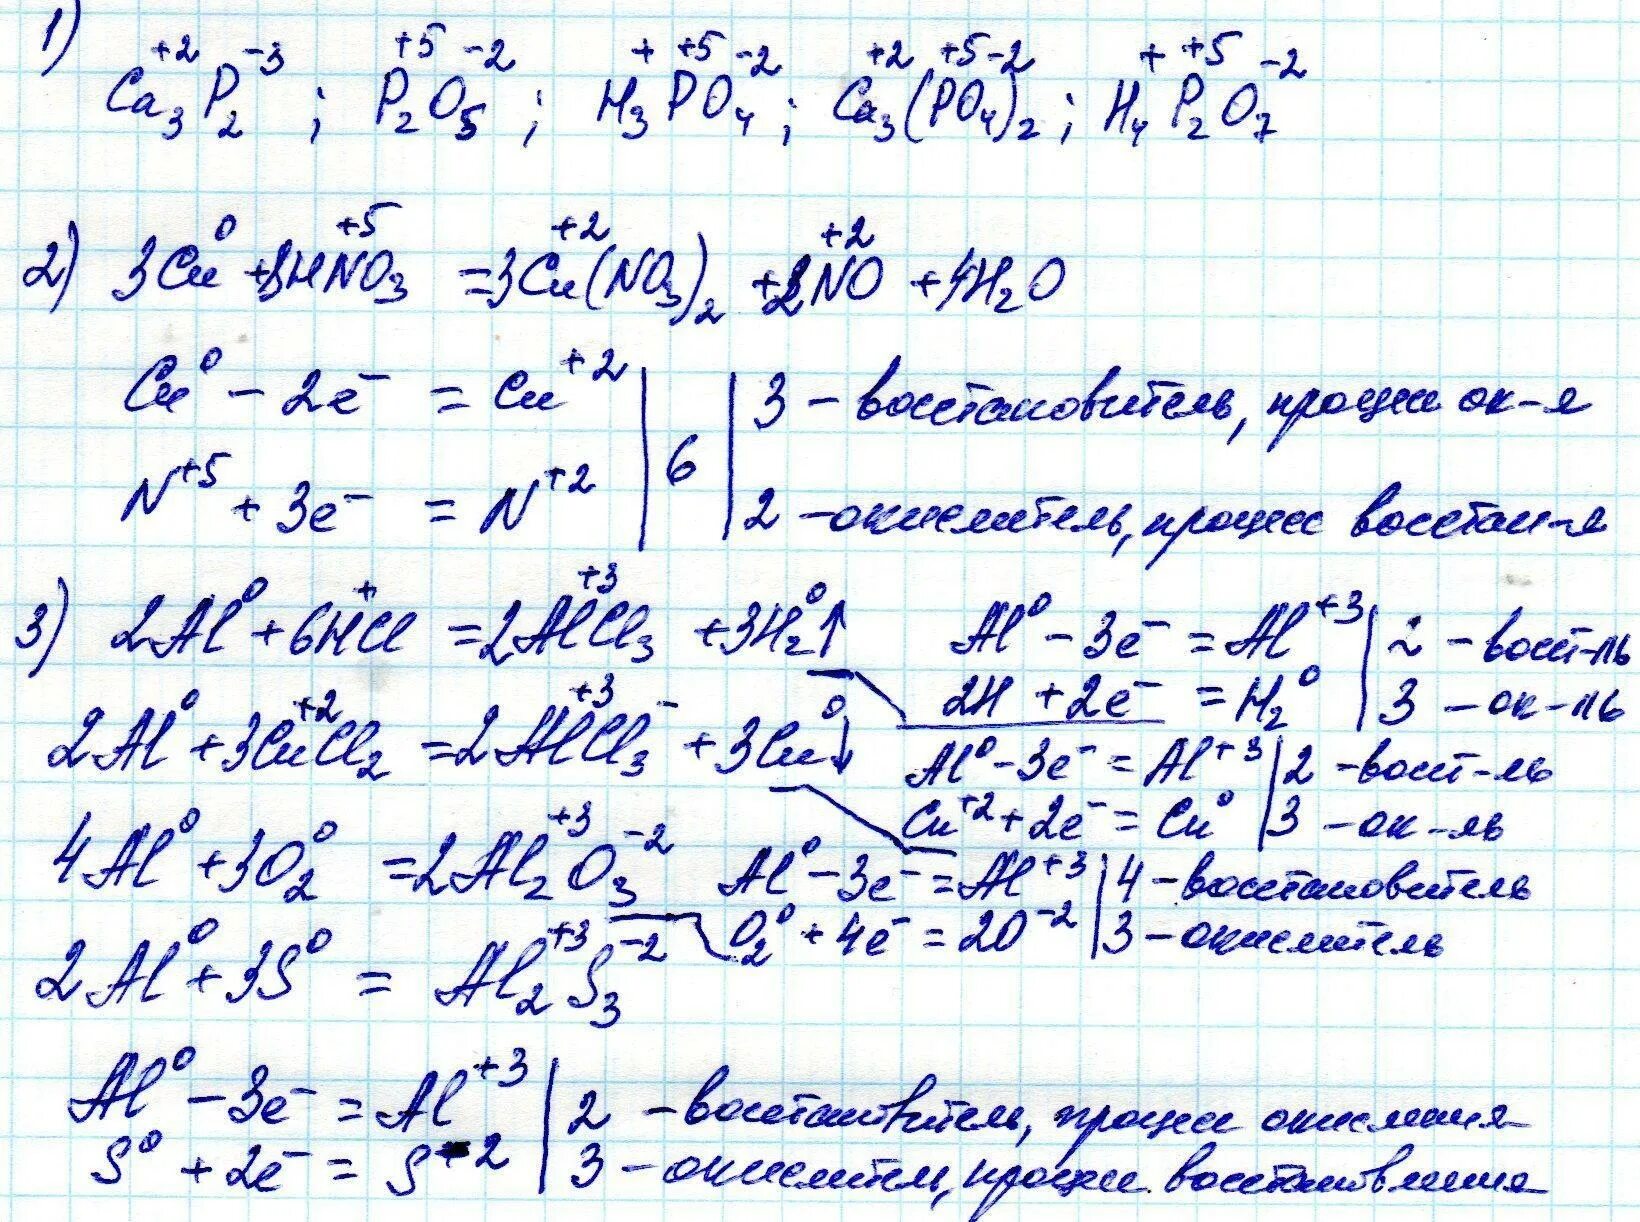 1)
Ca₃⁺²P₂⁻³ ; P₂⁺⁵O₅⁻² ; H₃⁺P⁺⁵O₄⁻² ; Ca₃⁺²(P⁺⁵O₄⁻²)₂ ; H₄⁺P₂⁺⁵O₇⁻²
2) 3Cu⁰ + 8HN⁺⁵O₃ = 3Cu⁺²(NO₃)₂ + 2N⁺²O + 4H₂O
Cu⁰ - 2e⁻ = Cu⁺² | 6 | 3 - восстановитель, процесс ок-я
N⁺⁵ + 3e⁻ = N⁺² | | 2 - окислитель, процесс восстан-я
3) 2Al⁰ + 6H⁺Cl = 2Al⁺³Cl₃ + 3H₂⁰↑
Al⁰ - 3e⁻ = Al⁺³ | 2 - восст-ль
2H + 2e⁻ = H₂⁰ | 3 - ок-ль
2Al⁰ + 3Cu⁺²Cl₂ = 2Al⁺³Cl₃⁻ + 3Cu⁰↓
Al⁰ - 3e⁻ = Al⁺³ | 2 - восст-ль
Cu⁺² + 2e⁻ = Cu⁰ | 3 - ок-ль
4Al⁰ + 3O₂⁰ = 2Al₂⁺³O₃⁻²
Al⁰ - 3e⁻ = Al⁺³ | 4 - восстановитель
O₂⁰ + 4e⁻ = 2O⁻² | 3 - окислитель
2Al⁰ + 3S⁰ = Al₂⁺³S₃⁻²
Al⁰ - 3e⁻ = Al⁺³ | 2 - восстановитель, процесс окисления
S⁰ + 2e⁻ = S⁻² | 3 - окислитель, процесс восстановления